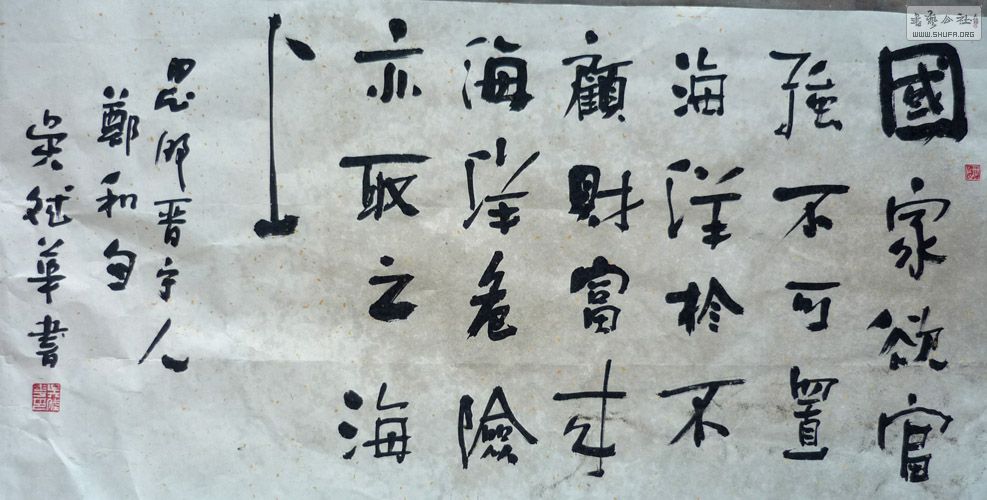 國家欲富
强不可置
海洋於不
顧財富来
海洋危險
亦取之海
上
昆明晋宁人
鄭和句
華書
书艺公社
WWW.SHUFA.ORG